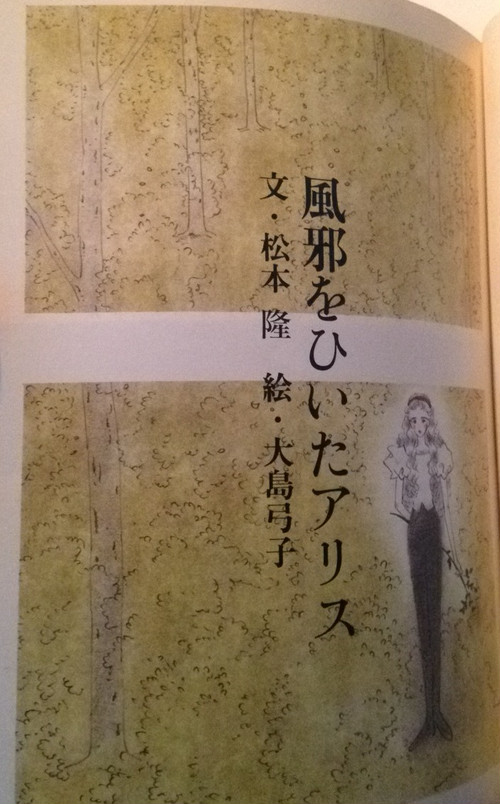 風邪をひいたアリス
文・松本 隆 絵・大島弓子